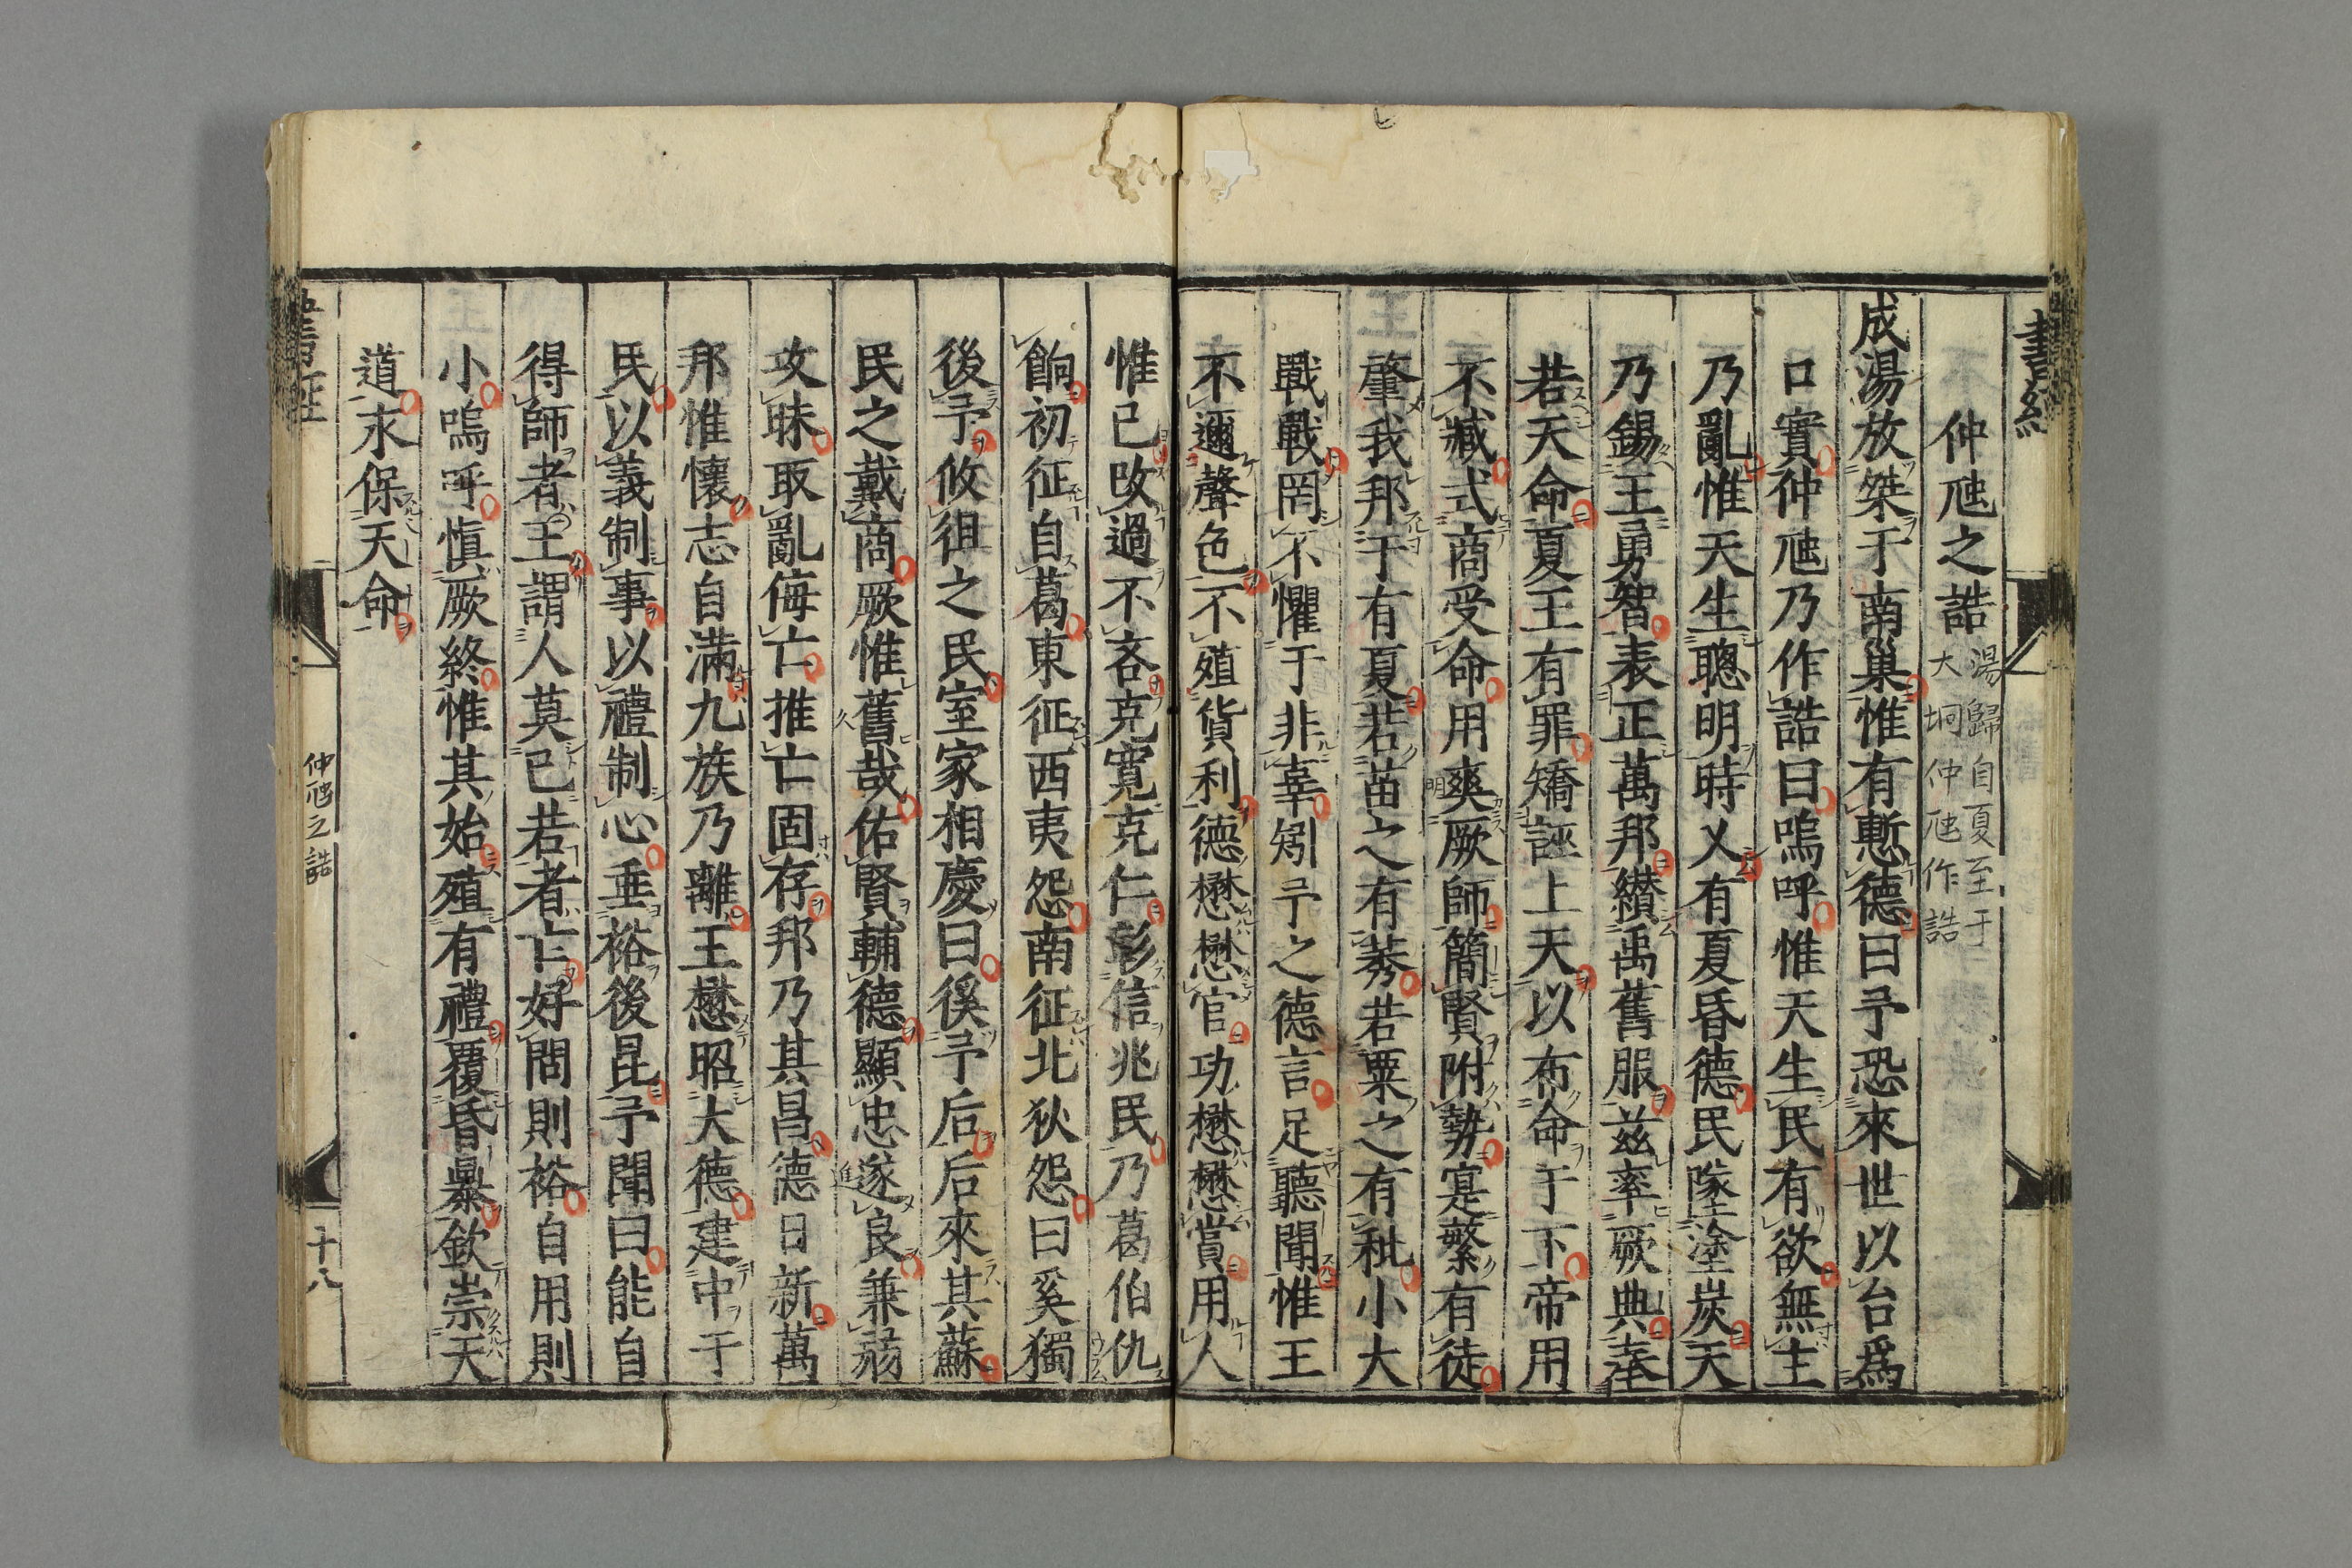 書經
仲虺之誥 湯歸自夏至于
大坰仲虺作誥
成湯放桀于南巢惟有慙德曰予恐來世以台爲
口實仲虺乃作誥曰嗚呼惟天生民有欲無主
乃亂惟天生聰明時乂有夏昏德民墜塗炭天
乃錫王勇智表正萬邦纉禹舊服茲率厥典奉
若天命夏王有罪矯誣上天以布命于下帝用
不臧式商受命用爽厥師簡賢附勢寔繁有徒
肇我邦于有夏若苗之有莠若粟之有秕小大
戰戰罔不懼于非辜矧予之德言足聽聞惟王
不邇聲色不殖貨利德懋懋官功懋懋賞用人
惟己改過不吝克寬克仁彰信兆民乃葛伯仇
餉初征自葛東征西夷怨南征北狄怨曰奚獨
後予攸徂之民室家相慶曰徯予后后來其蘇
民之戴商厥惟舊哉佑賢輔德顯忠遂良兼弱
攻昧取亂侮亡推亡固存邦乃其昌德日新萬
邦惟懷志自滿九族乃離王懋昭大德建中于
民以義制事以禮制心垂裕後昆予聞曰能自
得師者王謂人莫己若者亡好問則裕自用則
小嗚呼慎厥終惟其始殖有禮覆昏暴欽崇天
道永保天命
書經
仲虺之誥
十八